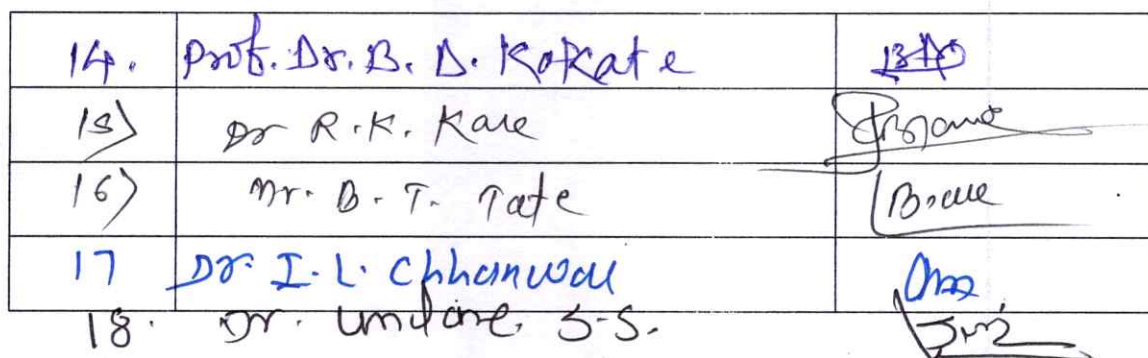 14. Prof. Dr. B. D. Kokate
15) Dr R. K. Kale
16) Mr. B. T. Tate
17 Dr. I. L. Chhanwal
18. Dr. Undare S.S.